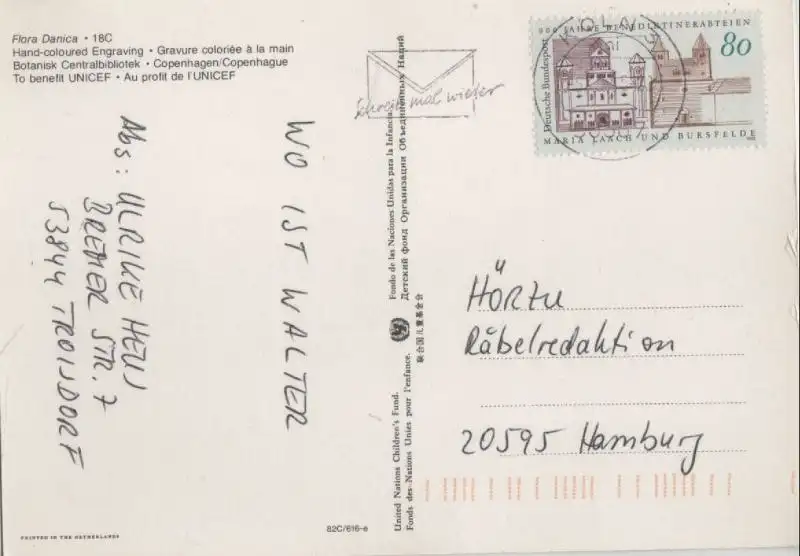 Flora Danica • 18C
Hand-coloured Engraving • Gravure coloriée à la main
Botanisk Centralbibliotek • Copenhagen/Copenhague
To benefit UNICEF • Au profit de l'UNICEF
Schreib mal wieder
900 JAHRE BENEDIKTINERABTEIEN
80
Deutsche Bundespost
MARIA LAACH UND BURSFELDE
KÖLN
Abs: ULRIKE
BREMER STR. 7
53844 TROISDORF
WO IST WALTER
United Nations Children's Fund. Fondo de las Naciones Unidas para la Infancia.
Fonds des Nations Unies pour l'enfance. Детский фонд Организации Объединённых Наций
联合国儿童基金会
HÖRZU
Räbelredaktion
20595 Hamburg
82C/616-e
PRINTED IN THE NETHERLANDS